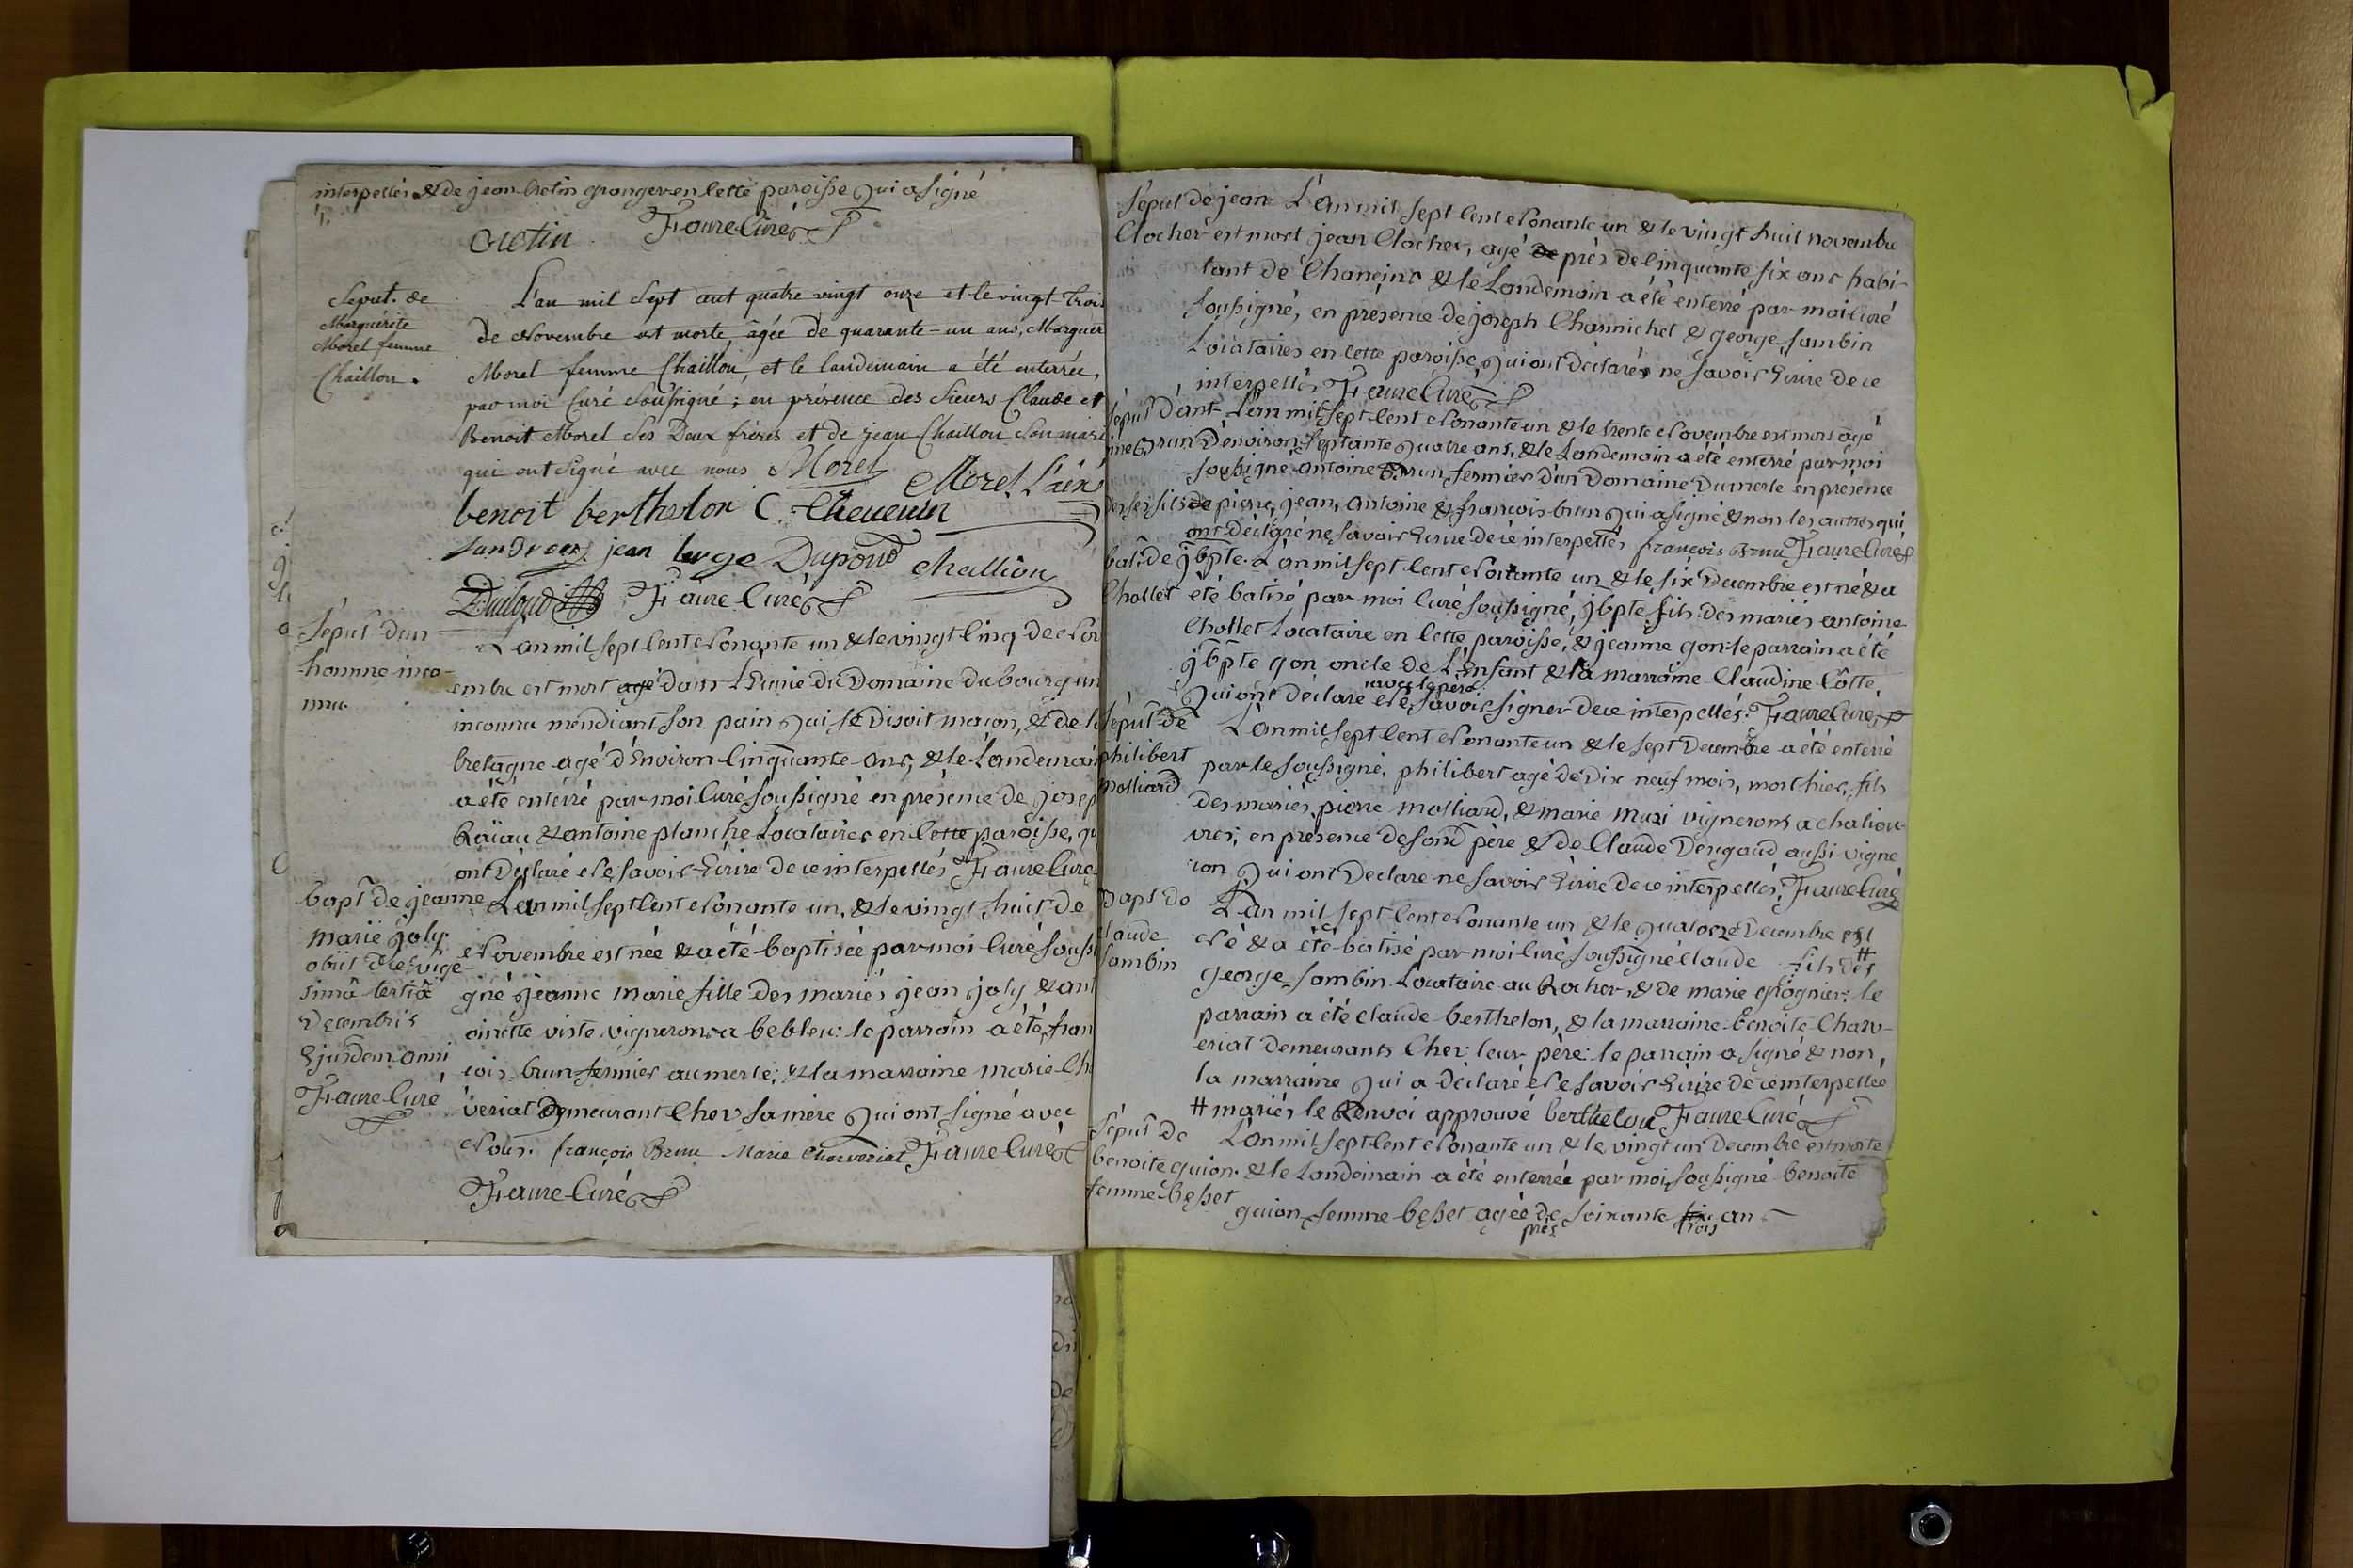 interpellés & de jean Cretin granger en cette paroisse qui a signé
Cretin Faure Curé
Sepult. de
Marguérite
Morel femme
Chaillon.
L'an mil Sept cent quatre vingt onze et le vingt trois
de Novembre est morte, âgée de quarante-un ans, Marguer
Morel femme Chaillou, et le landemain a été enterrée,
par moi Curé Soussigné; en présence des Sieurs Claude et
Benoit Morel Ses Deux frères et de jean Chaillou Son mari
qui ont Signé avec nous Morel Morel L'ainé
benoit berthelon C. Cheveuin
jean Dupond challion
Faure Curé
Sepult d'un
homme inco-
nnu.
L'an mil sept cent Nonante un & le vingt cinq de Nov
embre est mort agé dans L'Ecurie du Domaine du bourg un
inconnu mendiant son pain qui se Disoit maçon, & de la
bretagne agé d'Environ cinquante ans, & le Landemain
a été enterré par moi Curé soussigné en présence de josep
& antoine planche Locataires en Cette paroisse, qu
ont Déclaré Ne savoir Ecrire de ce interpellés Faure Curé
bapt de jeanne
marie joly.
obiit die vige-
simâ tertiâ
Decembris
Ejusdem anni
Faure Curé
L'an mil sept cent Nonante un, & le vingt huit de
Novembre est née & a été baptisée par moi Curé soussi
gné jeanne marie fille des mariés jean joly & ant
oinette viste vignerons a bebleu: le parrain a été, fran
cois brun fermier au merle; & la marraine marie Ch
veriat Demeurant Chez sa mère qui ont signé avec
Nous. françois Brun Marie Charveriat Faure Curé
Faure Curé
Sépult de jean
Clocher
L'an mil sept cent Nonante un & le vingt huit novembre
est mort jean Clocher, agé de près de cinquante six ans habi-
tant de Chaneins & le Landemain a été enterré par moi Curé
soussigné, en présence de joseph Charmichet & george sambin
Locataires en cette paroisse, qui ont déclarés ne savoir Ecrire de ce
interpellés Faure Curé
Sépult d'ant
oine Brun
L'an mil sept cent Nonante un & le trente Novembre est mort agé
D'environ septante quatre ans, & le Landemain a été enterré par moi
soussigné antoine Brun fermier d'un Domaine Dumerle en présence
de ses fils de pierre, jean, antoine & francois brun qui a signé & non les autres qui
ont déclaré ne savoir Ecrire de ce interpellés françois Brun Faure Curé
bat. de jbpte
Chollet
L'an mil sept cent Nonante un & le six Decembre est né & a
été batisé par moi Curé soussigné, jbpte fils des mariés antoine
Chollet Locataire en Cette paroisse, & jeanne gon: le parrain a été
jbpte gon oncle de L'Enfant & la marraine Claudine Côtte,
avec le père
qui ont déclaré Ne savoir signer de ce interpellés. Faure Curé
Sépult de
philibert
molliard
L'an mil sept cent Nonante un & le sept Decembre a été enterré
par le soussigné, philibert agé de Dix neuf mois, mort hier, fils
des mariés pierre molliard, & marie muzi vignerons a chaliou-
vres, en présence de sond père & de Claude Dengaud aussi vigne
ron qui ont Declare ne savoir Ecrire de ce interpellés, Faure Curé
Bapt de
claude
sambin
L'an mil sept cent Nonante un & le quatorze Decembre est
Né & a été batisé par moi Curé soussigné claude fils des #
george sambin Locataire au Rocher, & de marie grognier: le
parrain a été claude berthelon, & la marraine benoite Charv-
eriat demeurants Chez leur père: le parrain a signé & non,
la marraine qui a déclaré Ne savoir Ecrire de ce interpellée
# mariés le Renvoi approuvé berthelon Faure Curé
Sépult de
benoite guion
femme besset
L'an mil sept cent Nonante un & le vingt un Decembre est morte
& le Landemain a été enterrée par moi soussigné benoite
guion femme besset agée de soixante six ans
près trois